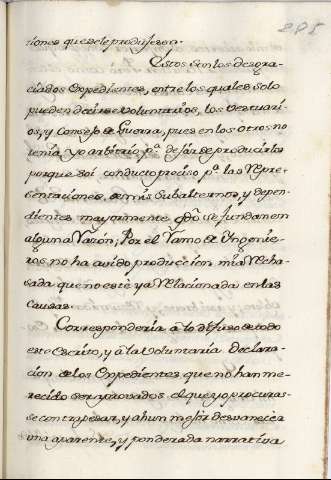 285
ciones que se le produjeron.
Estos son los desgra-
ciados Expedientes, entre los quales solo
pueden decirse voluntarios, los vestuari-
os, y Consejo de Guerra, pues en los otros no
tenia yo arbitrio pª. dejar de producirlos
porque soi conducto preciso pª. las Repre-
sentaciones de mis Subalternos, y depen-
dientes mayormente qdo. se fundan en
alguna Razón; Por el Ramo de Yngenie-
ros no ha avido producion mia Recha-
sada que no esté ya Relacionada en las
causas.
Corresponderia à lo difuso de todo
este Escrito, y à la voluntaria Declara-
cion de los Expedientes que no han me-
recido ser aprovados el que yo procuras-
se contrapesar, y ahun mejor desvanecer
una aparente, y ponderada narrativa